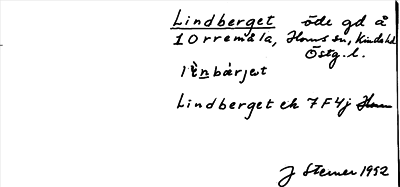 Lindberget öde gd å
Torremåla, Horns sn, Kinds hd
Östg. l.
lìnbárjet
Lindberget ek 7F4j Horn
J Sterner 1952